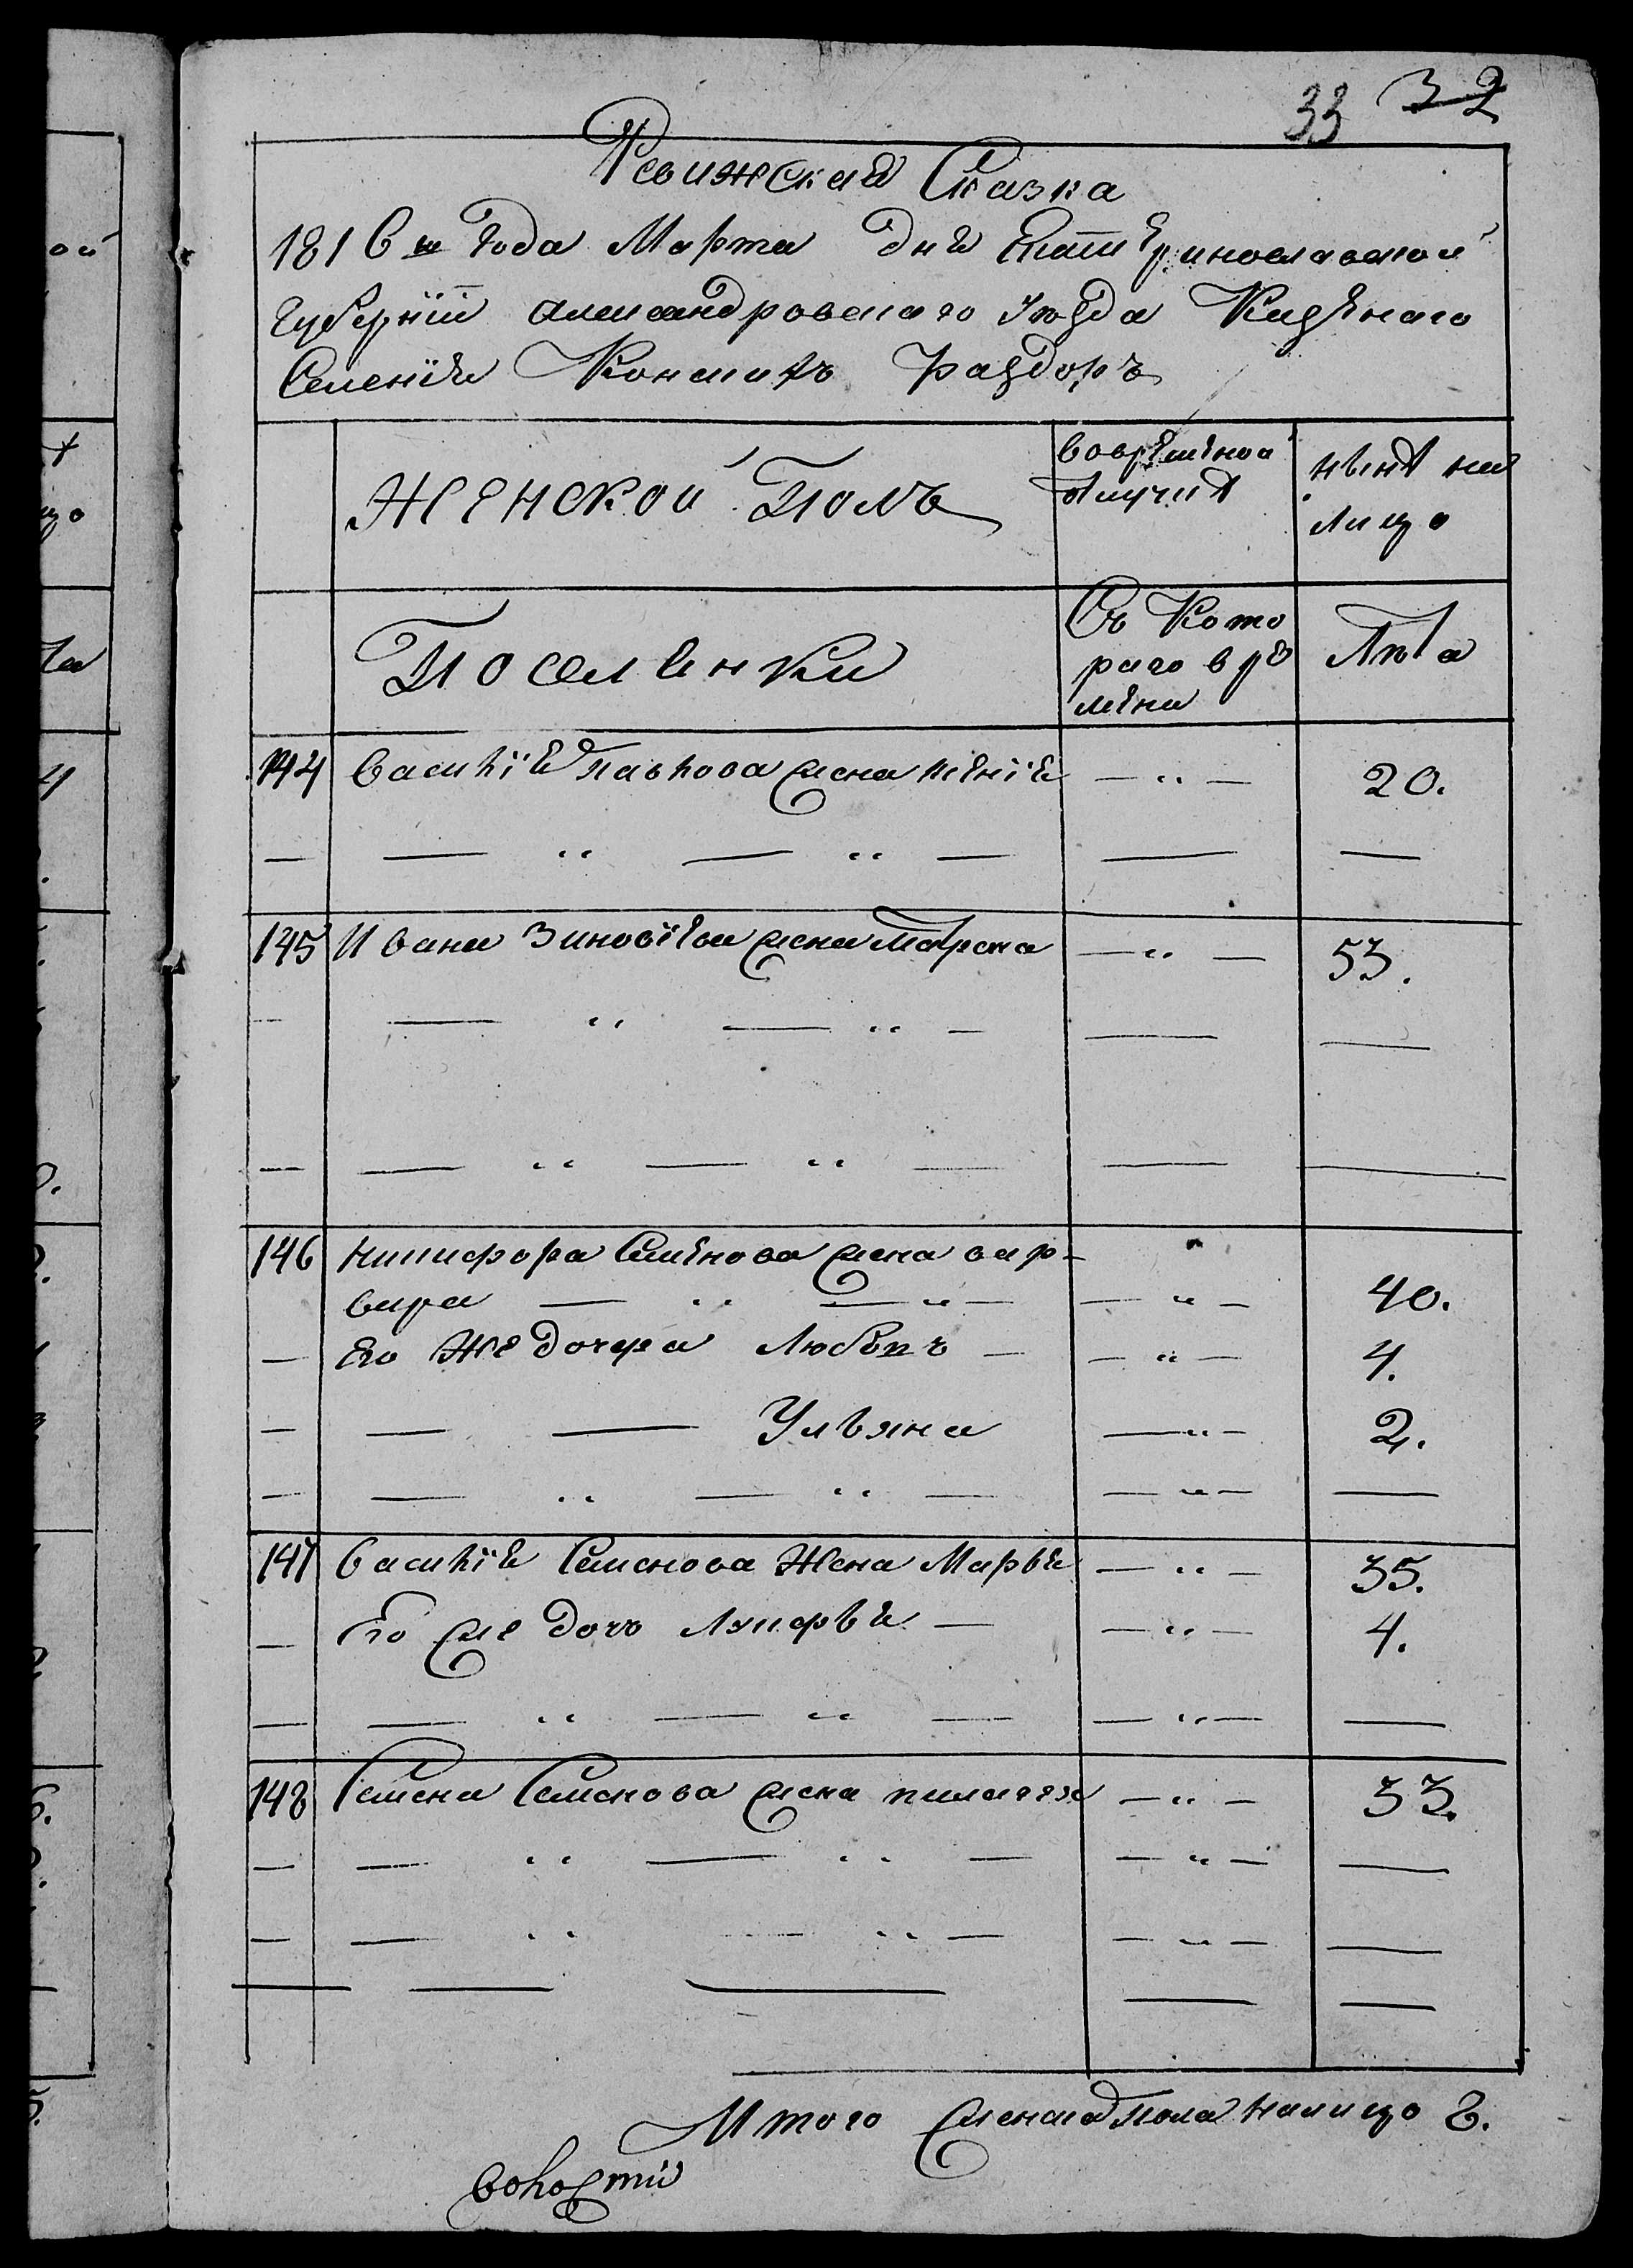 33 32
Ревижская Сказка
1816 го Года Марта дня Екатеринославской
губернии александровского уезда Казенаго
Селения Конских Раздоръ
женской Полъ
вовременой
отлучке
ныне на
лицо
Поселенки
Съ Кото
раго вре
мени
Лета
144 василия павлова жена 20.
145 Ивана Зиновиева жена 53.
146 никифора Семенова жена вар-
вара 40.
Его же дочера Любовъ 4.
Ульяна 2.
147 василия Семенова жена Марья 35.
Его же дочь Лукерья 4.
148 Семена Семенова жена пилагея 33.
Итого женска пола налицо 8.
волости